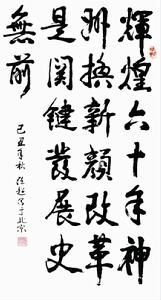 輝煌六十年神
州換新顏改革
是関鍵發展史
無前
己丑年秋 於北京